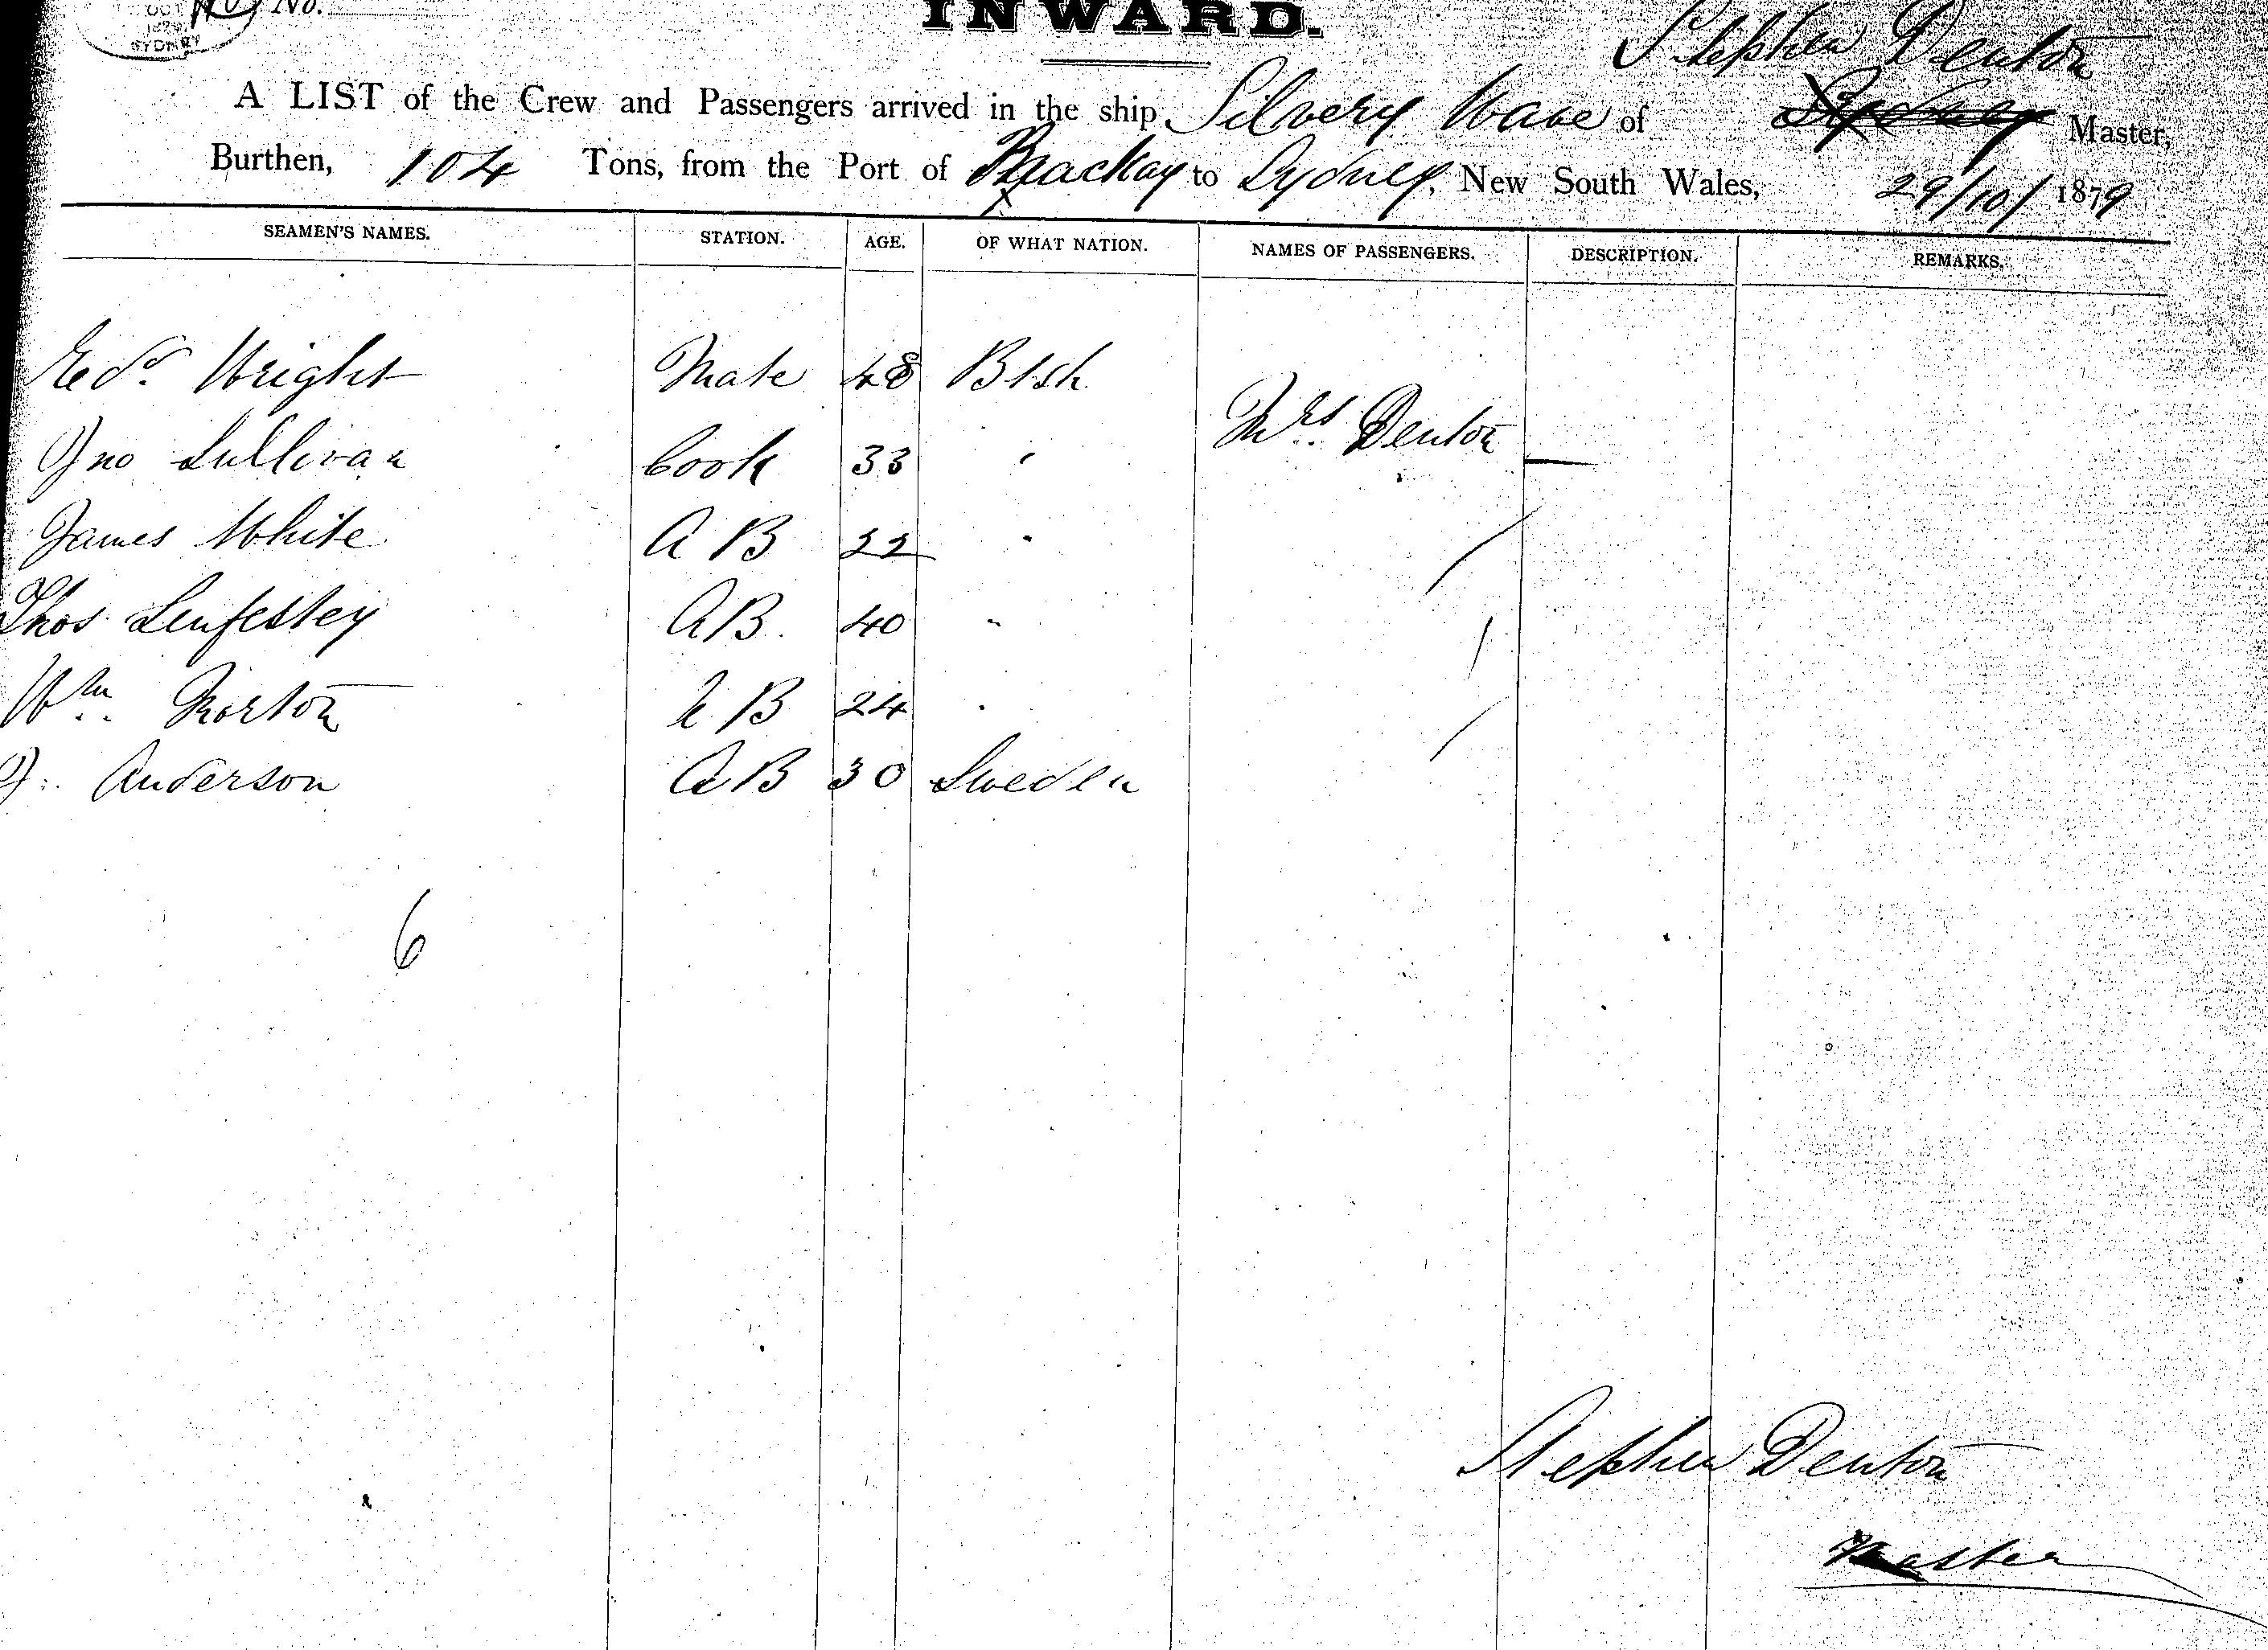 OCT No.
1879
SYDNEY
INWARD.
Stephen Denton
A LIST of the Crew and Passengers arrived in the ship Silvery Wave of Sydney Master,
Burthen, 104 Tons, from the Port of Mackay to Sydney, New South Wales, 29/10/1879
SEAMEN'S NAMES. STATION. AGE. OF WHAT NATION. NAMES OF PASSENGERS. DESCRIPTION. REMARKS.
Edd. Wright Mate 48 Btsh
Mrs Denton
Jno Sullivan Cook 33 "
James White A B 22 "
Thos Lenfestey AB. 40 "
Wm Norton A B 24 "
J. Anderson AB 30 Sweden
6
Stephen Denton
Master